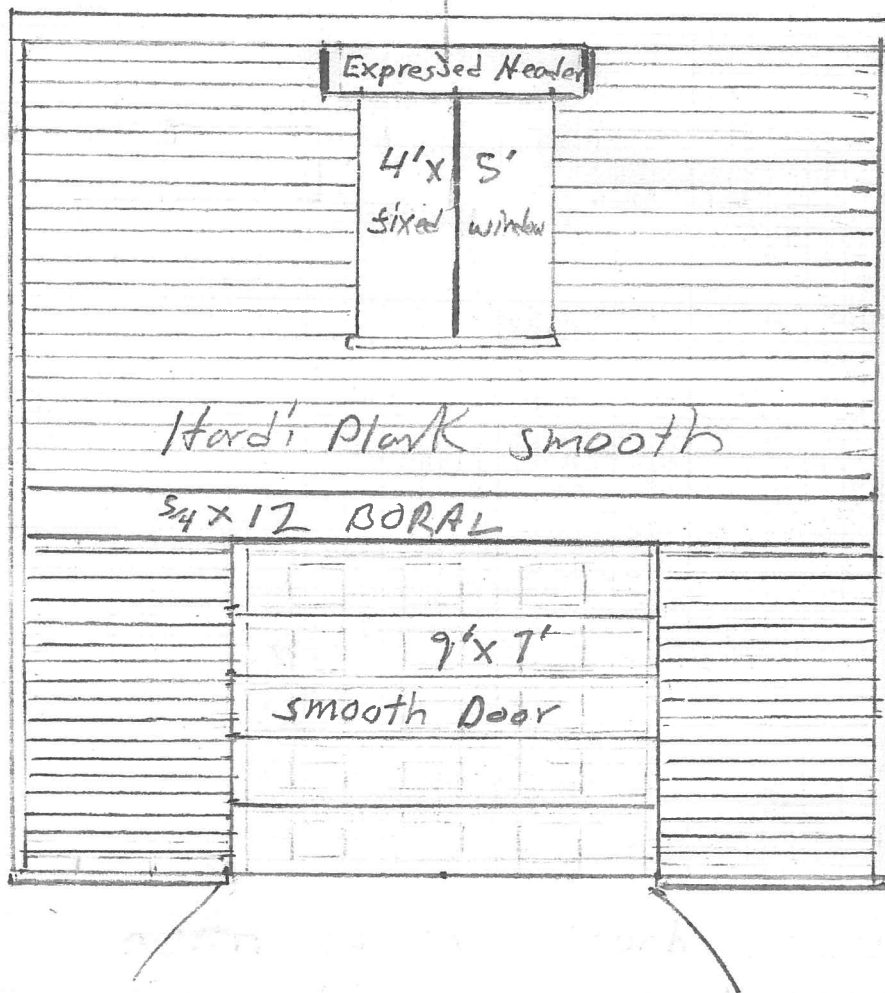 Expressed Header
4' x 5'
fixed window
Hardi Plank smooth
5/4 x 12 BORAL
9' x 7'
smooth Door